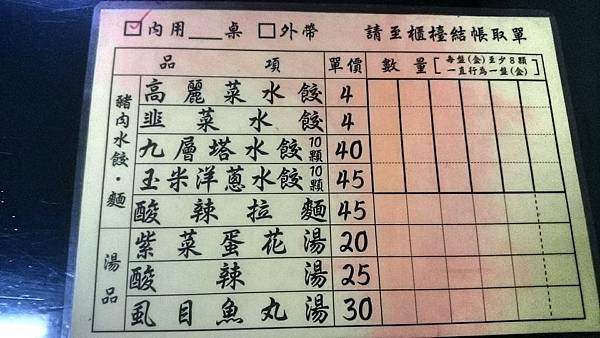 ☑內用___桌 ☐外帶 請至櫃檯結帳取單
品項 單價 數量 [每盤(盒)至少8顆 一直行為一盤(盒)]
豬肉水餃・麵
高麗菜水餃 4
韭菜水餃 4
九層塔水餃10顆 40
玉米洋蔥水餃10顆 45
酸辣拉麵 45
湯品
紫菜蛋花湯 20
酸辣湯 25
虱目魚丸湯 30